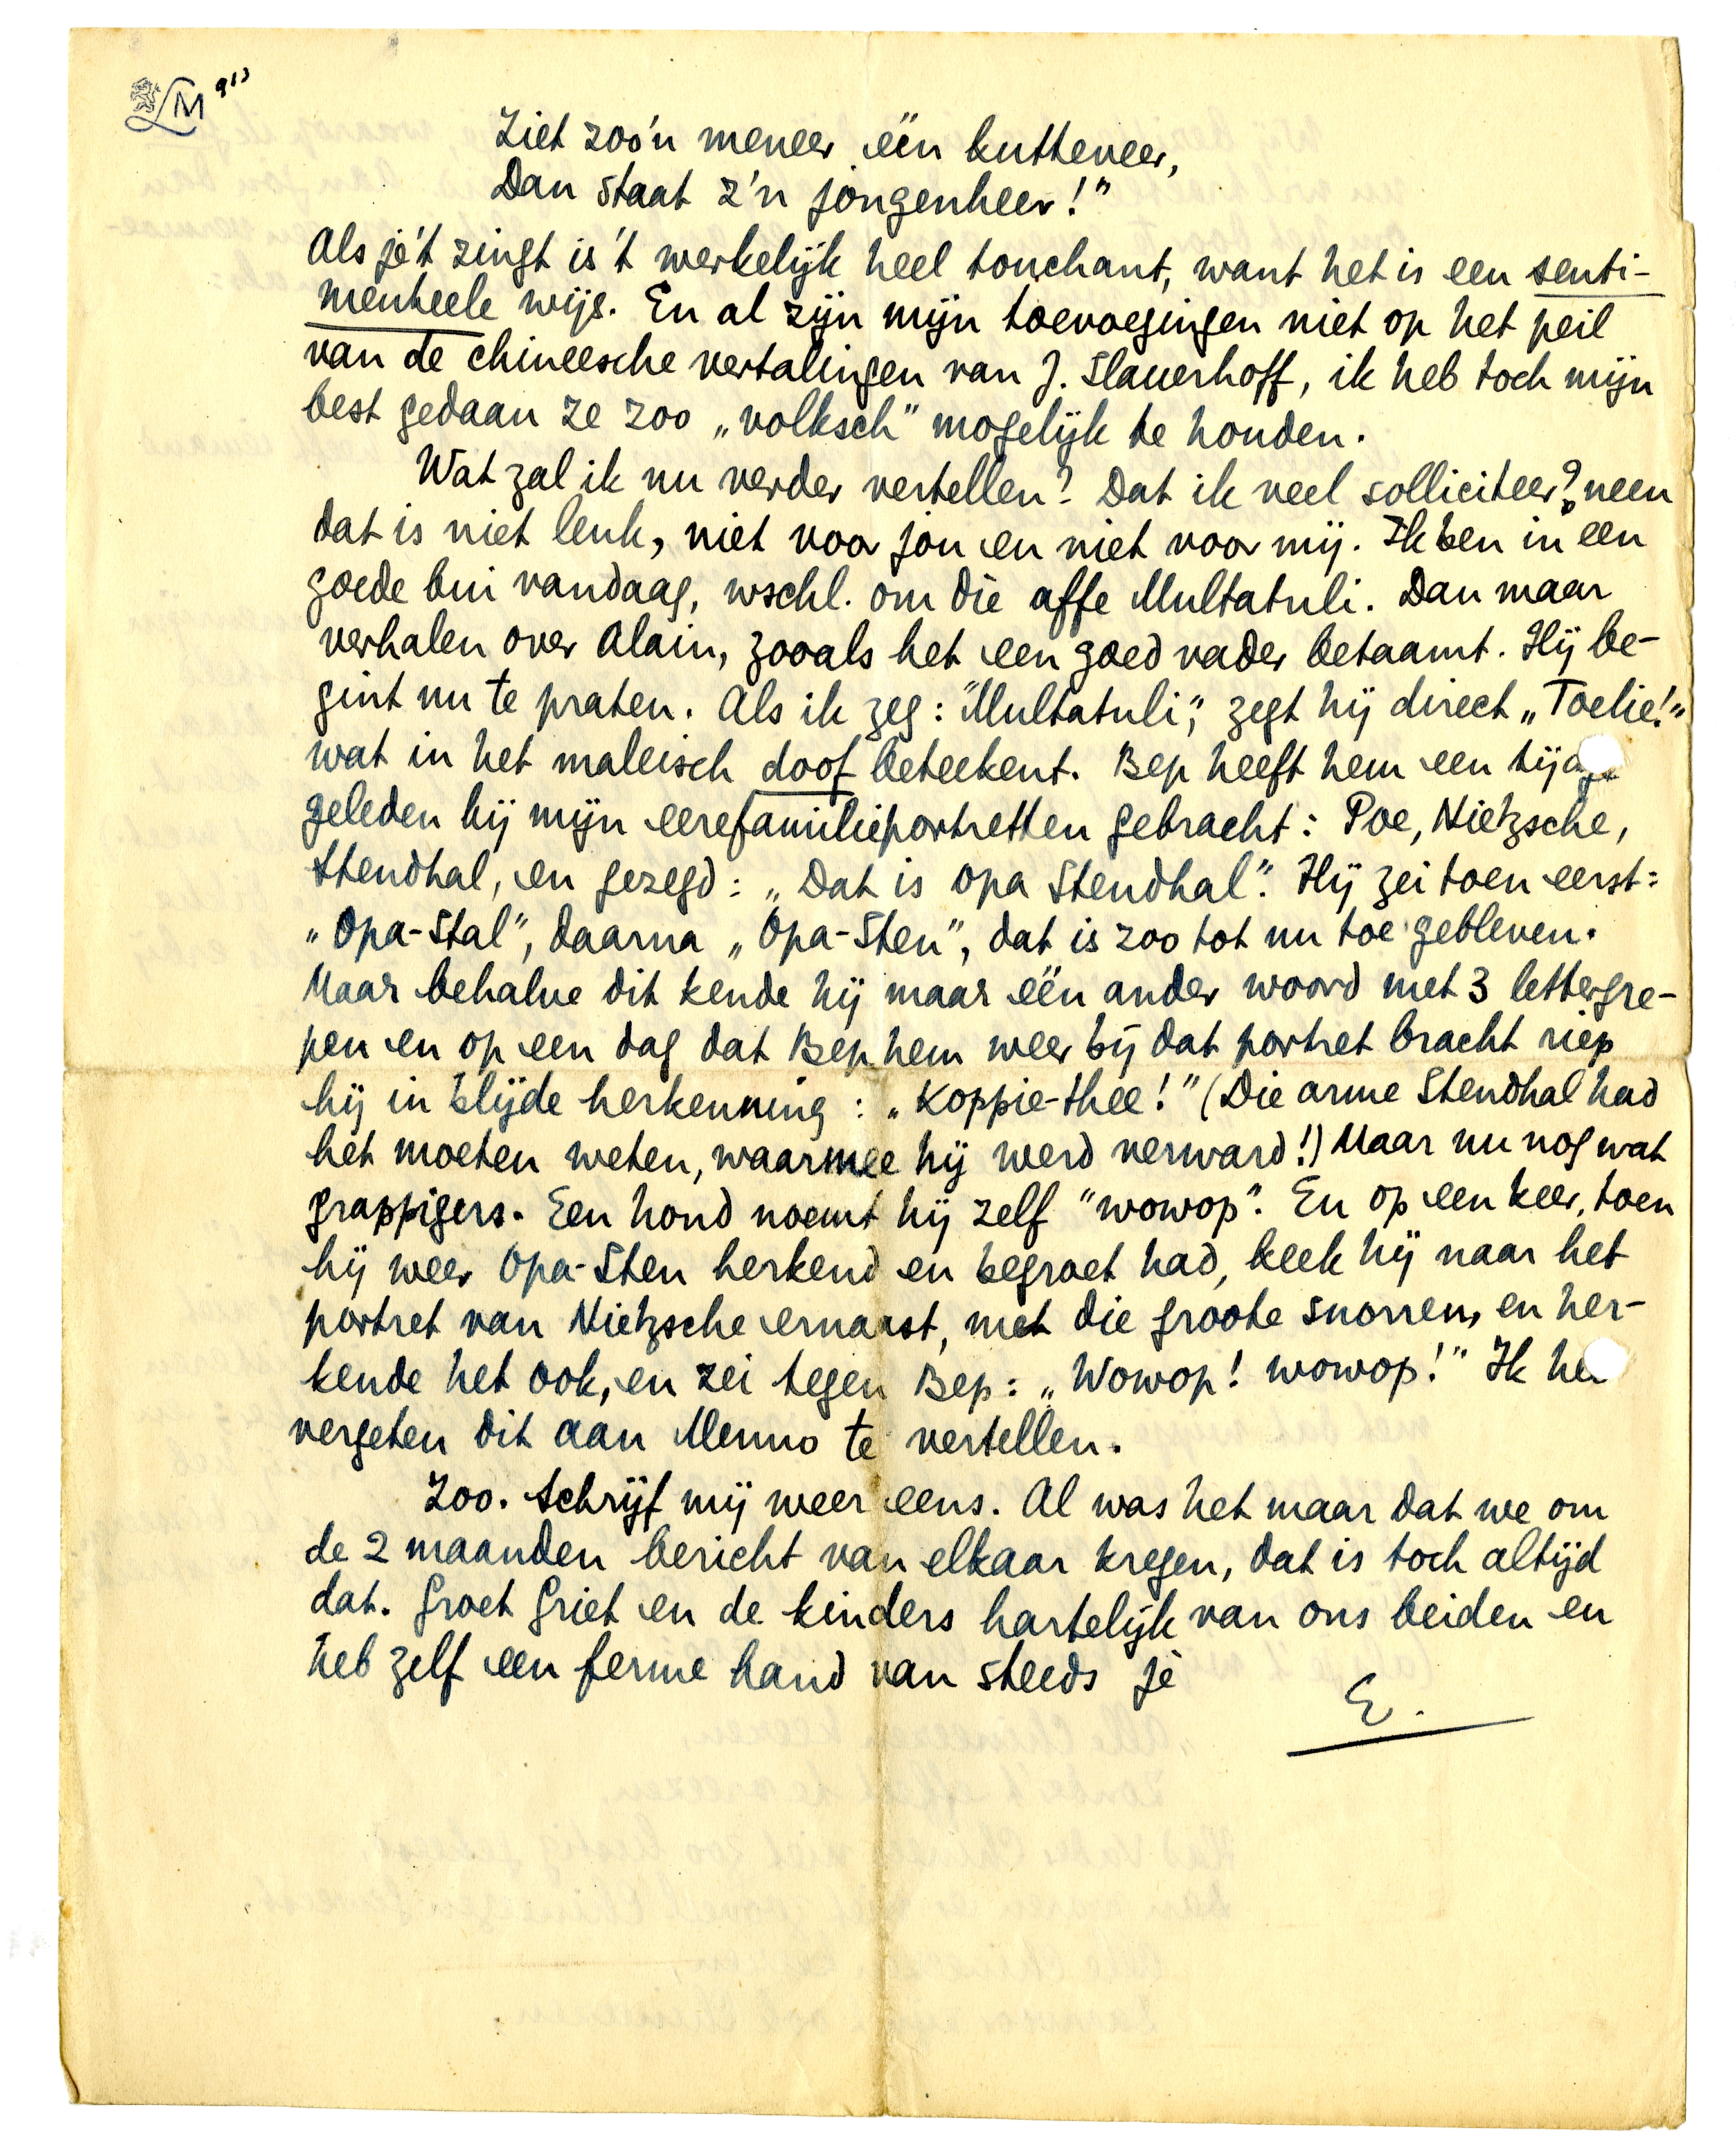 LM 913
Ziet zoo'n meneer één kutteveer,
Dan staat z'n jongenheer!"
Als je't zingt is't werkelijk heel touchant, want het is een senti-
menteele wijs. En al zijn mijn toevoegingen niet op het peil
van de chineesche vertalingen van J. Slauerhoff, ik heb toch mijn
best gedaan ze zoo „volksch" mogelijk te houden.
Wat zal ik nu verder vertellen? Dat ik veel solliciteer? neen
dat is niet leuk, niet voor jou en niet voor mij. Ik ben in een
goede bui vandaag, wschl. om die affe Multatuli. Dan maar
verhalen over Alain, zooals het een goed vader betaamt. Hij be-
gint nu te praten. Als ik zeg: "Multatuli", zegt hij direct „Toelie!"
wat in het maleisch doof beteekent. Bep heeft hem een tijdje
geleden bij mijn eerefamilieportretten gebracht: Poe, Nietzsche,
Stendhal, en gezegd: „Dat is opa Stendhal". Hij zei toen eerst:
„Opa-Stal", daarna „Opa-Sten", dat is zoo tot nu toe gebleven.
Maar behalve dit kende hij maar één ander woord met 3 lettergre-
pen en op een dag dat Bep hem weer bij dat portret bracht riep
hij in blijde herkenning: „Koppie-thee!" (Die arme Stendhal had
het moeten weten, waarmee hij werd verward!) Maar nu nog wat
grappigers. Een hond noemt hij zelf "wowop". En op een keer, toen
hij weer Opa-Sten herkend en begroet had, keek hij naar het
portret van Nietzsche ernaast, met die groote snorren, en her-
kende het ook, en zei tegen Bep: „Wowop! wowop!" Ik heb
vergeten dit aan Menno te vertellen.
Zoo. Schrijf mij weer eens. Al was het maar dat we om
de 2 maanden bericht van elkaar kregen, dat is toch altijd
dat. Groet Griet en de kinders hartelijk van ons beiden en
heb zelf een ferme hand van steeds je
E.